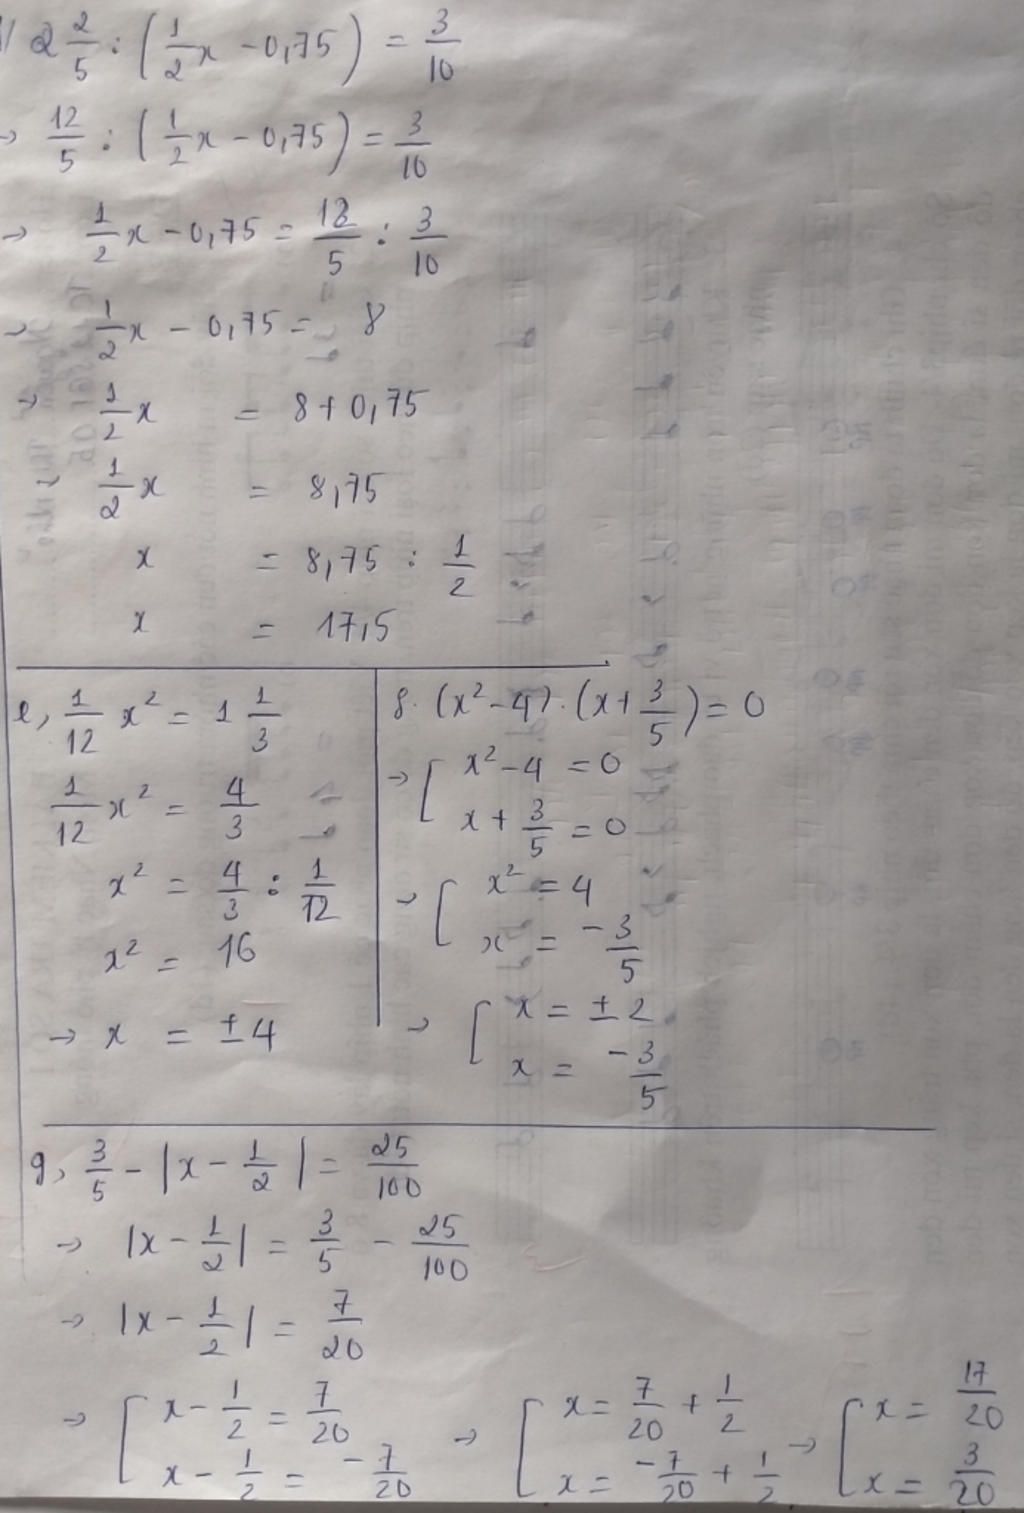 2 2/5 : (1/2 x - 0,75) = 3/10
→ 12/5 : (1/2 x - 0,75) = 3/10
→ 1/2 x - 0,75 = 12/5 : 3/10
→ 1/2 x - 0,75 = 8
→ 1/2 x = 8 + 0,75
1/2 x = 8,75
x = 8,75 : 1/2
x = 17,5
e, 1/12 x² = 1 1/3
1/12 x² = 4/3
x² = 4/3 : 1/12
x² = 16
→ x = ±4
8. (x² - 4) . (x + 3/5) = 0
→ [ x² - 4 = 0
x + 3/5 = 0
→ [ x² = 4
x = -3/5
→ [ x = ±2
x = -3/5
g, 3/5 - |x - 1/2| = 25/100
→ |x - 1/2| = 3/5 - 25/100
→ |x - 1/2| = 7/20
→ [ x - 1/2 = 7/20 → [ x = 7/20 + 1/2 → [ x = 17/20
x - 1/2 = -7/20 x = -7/20 + 1/2 x = 3/20